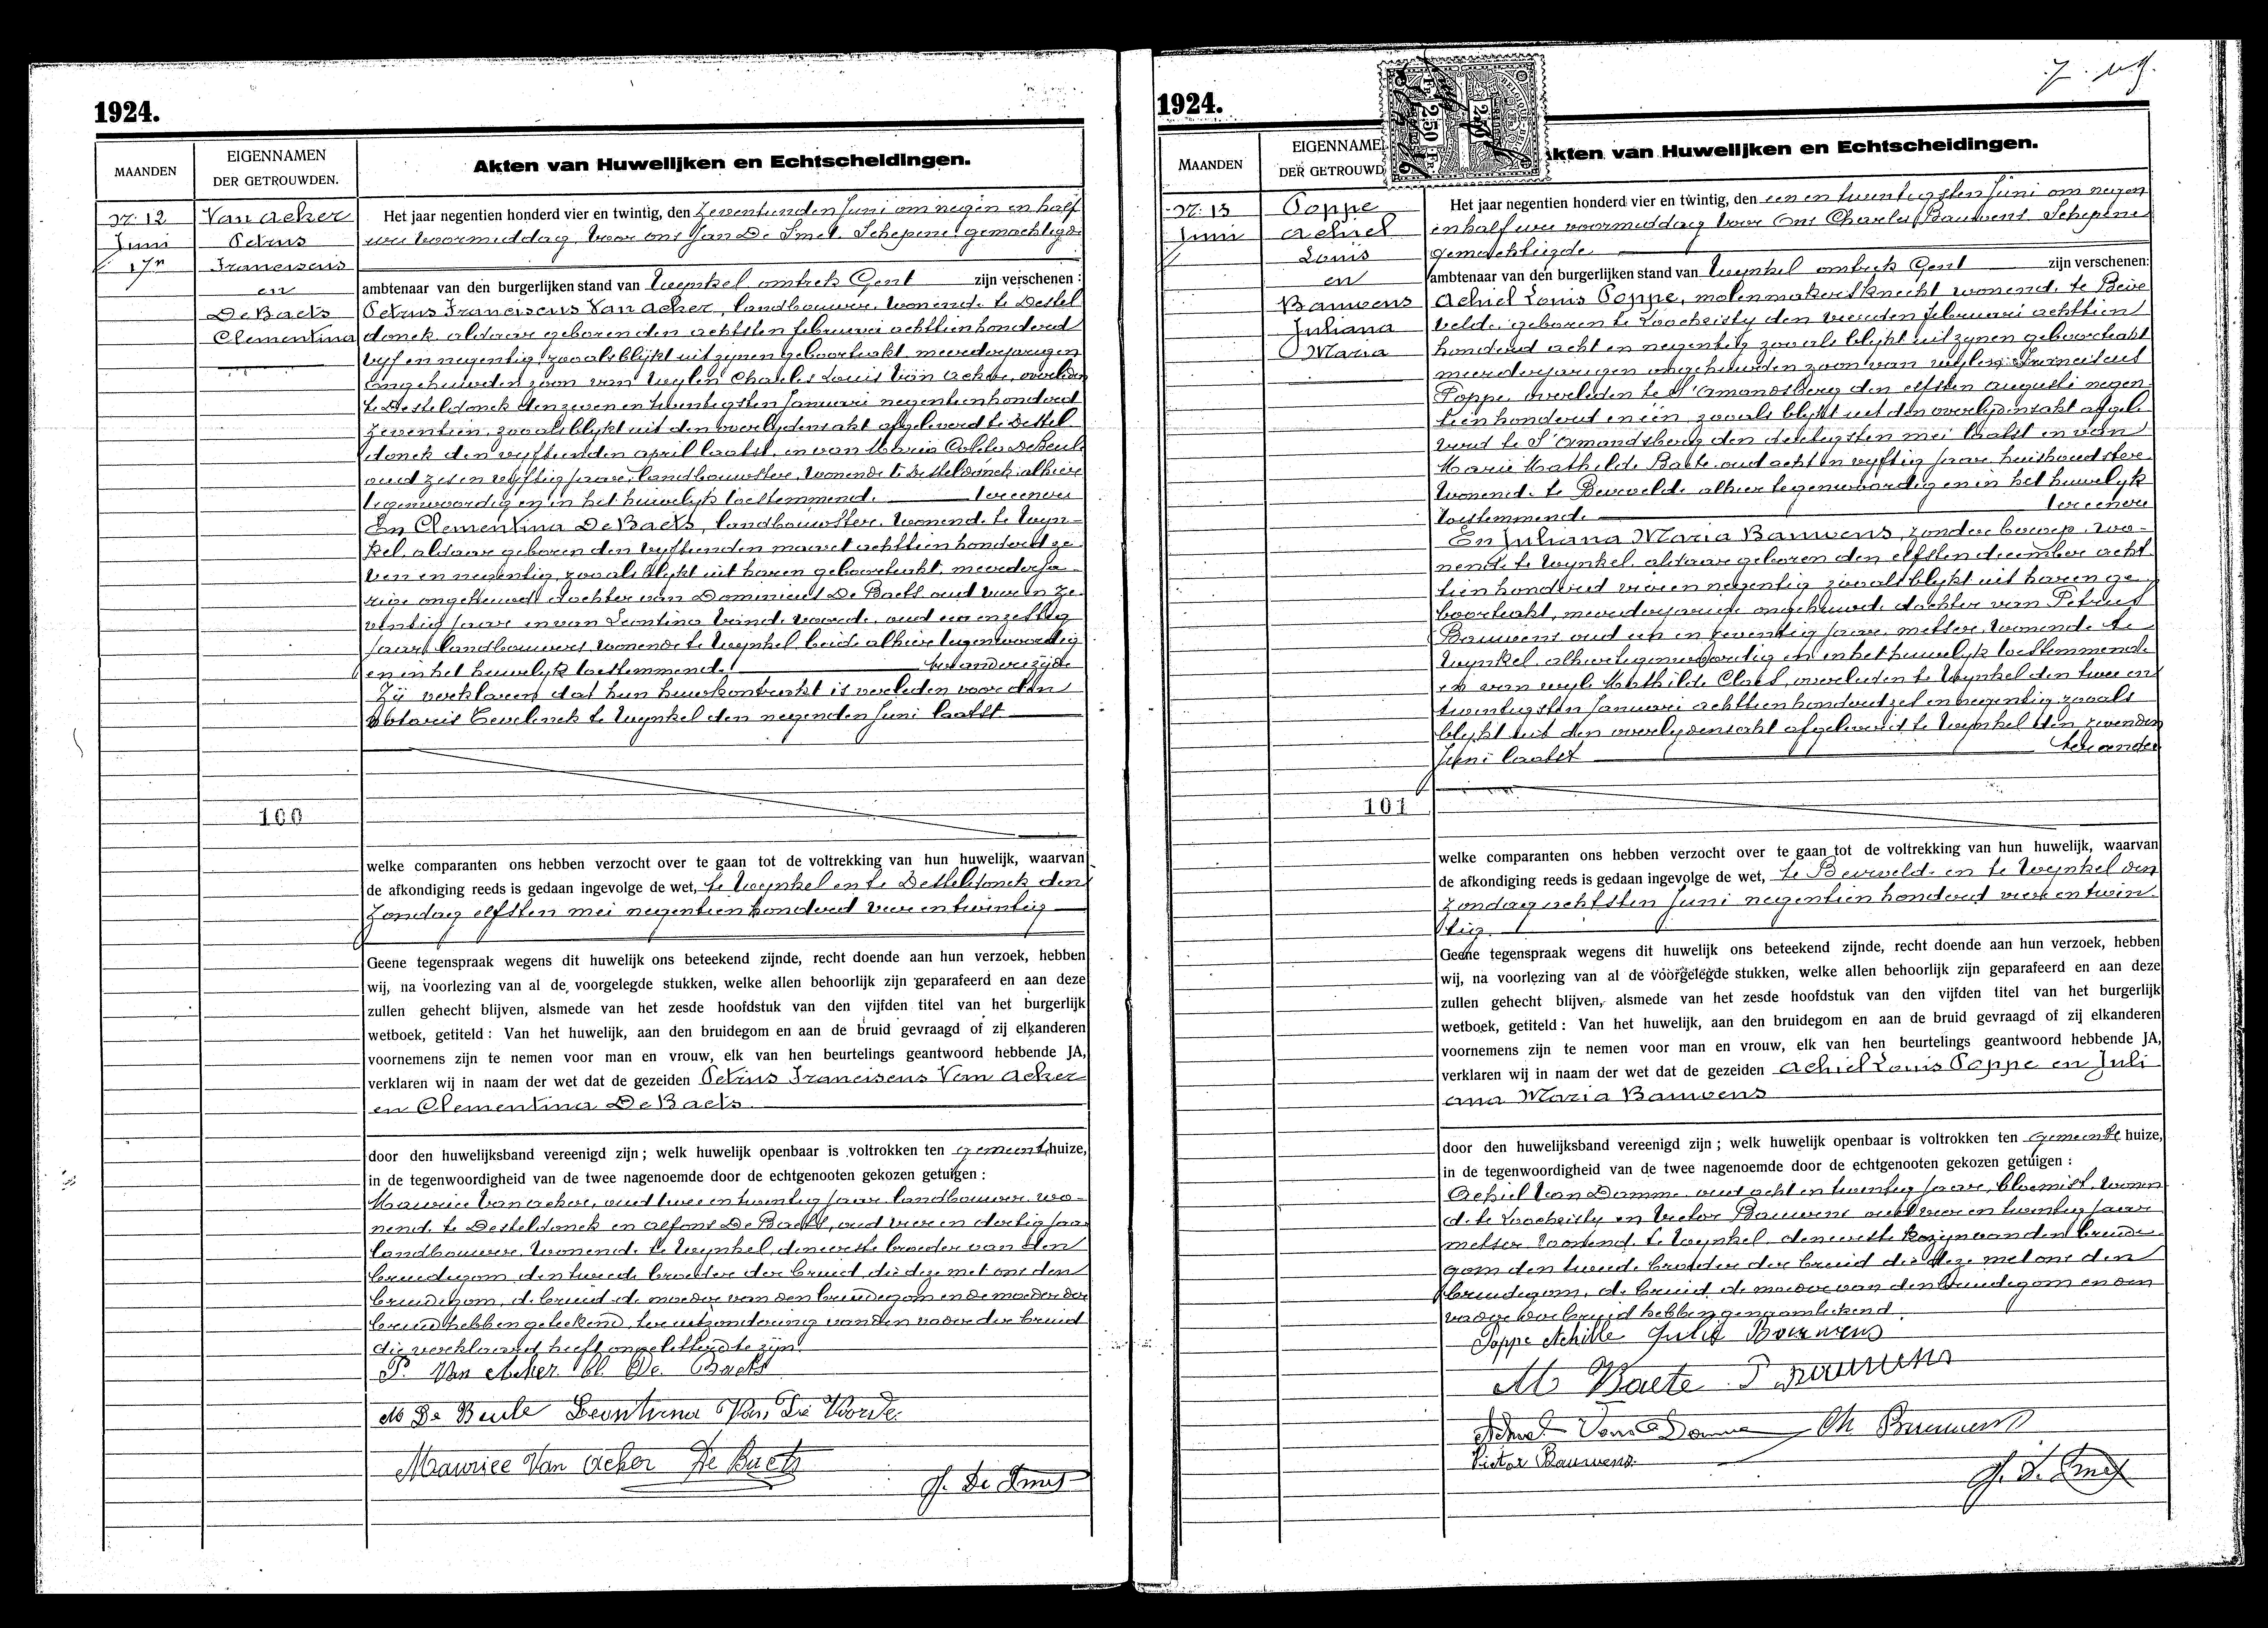 1924.
MAANDEN
EIGENNAMEN
DER GETROUWDEN.
Akten van Huwelijken en Echtscheidingen.
Nr. 12
Juni
17n
Van Acker
Petrus
Franciscus
en
De Baets
Clementina
Het jaar negentien honderd vier en twintig, den zeventienden Juni om negen en half
ure voormiddag voor ons Jan De Smet, Schepene gemachtigde
ambtenaar van den burgerlijken stand van Wynkel omtrek Gent zijn verschenen:
Petrus Franciscus Van Acker, landbouwer, wonende te Destel
donck, aldaar geboren den achtsten februari achttienhonderd
vyf en negentig, zooals blykt uit zynen geboorteakt, meerderjarigen
ongehuwden zoon van wylen Charles Louis Van Acker, overleden
te Desteldonck den zeven en twintigsten Januari negentienhonderd
zeventien, zooals blykt uit den overlydensakt afgeleverd te Destel
donck den vyftienden april laatst, en van Maria Coleta De Beule
oud zes en vyftig jaar, landbouwster, wonende te Desteldonck, alhier
tegenwoordig en in het huwelyk toestemmend. ter eenere
En Clementina De Baets, landbouwster, wonende te Wyn-
kel, aldaar geboren den vyftienden maart achttienhonderd ze
ven en negentig, zooals blykt uit haren geboorteakt, meerderja-
rige ongehuwde dochter van Dominicus De Baets oud vier en ze
ventig jaar en van Leontina Vande Voorde, oud een en zestig
jaar, landbouwers wonende te Wynkel beide alhier tegenwoordig
en in het huwelyk toestemmend. ter anderezyde
Zij verklaren dat hun huwkontrakt is verleden voor den
Notaris Eevelinck te Wynkel den negenden Juni laatst
100
welke comparanten ons hebben verzocht over te gaan tot de voltrekking van hun huwelijk, waarvan
de afkondiging reeds is gedaan ingevolge de wet, te Wynkel en te Desteldonck den
Zondag elfsten mei negentien honderd vier en twintig
Geene tegenspraak wegens dit huwelijk ons beteekend zijnde, recht doende aan hun verzoek, hebben
wij, na voorlezing van al de voorgelegde stukken, welke allen behoorlijk zijn geparafeerd en aan deze
zullen gehecht blijven, alsmede van het zesde hoofdstuk van den vijfden titel van het burgerlijk
wetboek, getiteld: Van het huwelijk, aan den bruidegom en aan de bruid gevraagd of zij elkanderen
voornemens zijn te nemen voor man en vrouw, elk van hen beurtelings geantwoord hebbende JA,
verklaren wij in naam der wet dat de gezeiden Petrus Franciscus Van Acker
en Clementina De Baets
door den huwelijksband vereenigd zijn; welk huwelijk openbaar is voltrokken ten gemeentehuize,
in de tegenwoordigheid van de twee nagenoemde door de echtgenooten gekozen getuigen:
Maurice Van Acker, oud twee en twintig jaar, landbouwer, wo-
nend. te Desteldonck en Alfons De Baets, oud vier en dertig jaar
landbouwer, wonend. te Wynkel, den eerste broeder van den
bruidegom, den tweede broeder der bruid, die deze met ons den
bruidegom, de bruid de moeder van den bruidegom en de moeder der
bruid hebben geteekend, ter uitzondering van den vader der bruid
die verklaard heeft ongeletterd te zijn.
P. Van Acker Cl. De Baets
M De Beule Leontina Van De Voorde
Maurice Van Acker De Baets
J. De Smet
1924.
MAANDEN
EIGENNAME
DER GETROUWD
kten van Huwelijken en Echtscheidingen.
Nr. 13
Juni
Poppe
Achiel
Louis
en
Bauwens
Juliana
Maria
Het jaar negentien honderd vier en twintig, den een en twintigsten Juni om negen
en half ure voormiddag voor Ons Charles Bauwens Schepene
gemachtigde
ambtenaar van den burgerlijken stand van Wynkel omtrek Gent zijn verschenen:
Achiel Louis Poppe, molenmakersknecht wonend. te Beir
velde, geboren te Loochristy den vierden februari achttien
honderd acht en negentig zooals blykt uit zynen geboorteakt
meerderjarigen ongehuwden zoon van wylen Franciscus
Poppe overleden te St Amandsberg den elfsten augusti negen
tien honderd en één zooals blykt uit den overlydensakt afgele
verd te St Amandsberg den dertigsten mei laatst en van
Marie Mathilde Baete oud acht en vyftig jaar huishoudster
wonend. te Beirvelde alhier tegenwoordig en in het huwelyk
toestemmend. ter eenere
En Juliana Maria Bauwens, zonder beroep, wo-
nende te Wynkel, aldaar geboren den elfsten december acht
tien honderd vier en negentig zooals blykt uit haren ge
boorteakt, meerderjarige ongehuwde dochter van Petrus
Bauwens oud een en zeventig jaar, metser, wonende te
Wynkel, alhier tegenwoordig en in het huwelyk toestemmende
en van wyle Mathilde Claes, overleden te Wynkel den twee en
twintigsten Januari achttienhonderd zes en negentig zooals
blykt uit den overlydensakt afgeleverd te Wynkel den zevenden
Juni laatst ter andere
101
welke comparanten ons hebben verzocht over te gaan tot de voltrekking van hun huwelijk, waarvan
de afkondiging reeds is gedaan ingevolge de wet, te Beirveld. en te Wynkel den
Zondag achtsten Juni negentien honderd vier en twin
tig.
Geene tegenspraak wegens dit huwelijk ons beteekend zijnde, recht doende aan hun verzoek, hebben
wij, na voorlezing van al de voorgelegde stukken, welke allen behoorlijk zijn geparafeerd en aan deze
zullen gehecht blijven, alsmede van het zesde hoofdstuk van den vijfden titel van het burgerlijk
wetboek, getiteld: Van het huwelijk, aan den bruidegom en aan de bruid gevraagd of zij elkanderen
voornemens zijn te nemen voor man en vrouw, elk van hen beurtelings geantwoord hebbende JA,
verklaren wij in naam der wet dat de gezeiden Achiel Louis Poppe en Juli
ana Maria Bauwens
door den huwelijksband vereenigd zijn; welk huwelijk openbaar is voltrokken ten Gemeentehuize,
in de tegenwoordigheid van de twee nagenoemde door de echtgenooten gekozen getuigen:
Achiel Van Damme oud acht en twintig jaar, bloemist, wonen
d. te Loochristy en Victor Bauwens oud vier en twintig jaar
metser wonend. te Wynkel, den eerste kozyn van den bruide-
gom den tweede broeder der bruid die deze met ons den
bruidegom, de bruid de moeder van den bruidegom en den
vader der bruid hebben genaamteekend.
Poppe Achille Julia Bauwens
M Baete P Bauwens
Achiel Van Damme Ch Bauwens
Victor Bauwens
J. De Smet